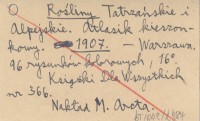 Rośliny Tatrzańskie i
Alpejskie. Atlasik kieszon-
kowy. 1907. — Warszawa.
96 rysunków kolorowych, 16°.
Książki Dla Wszystkich
nr 366.
Nakład M. Arcta.